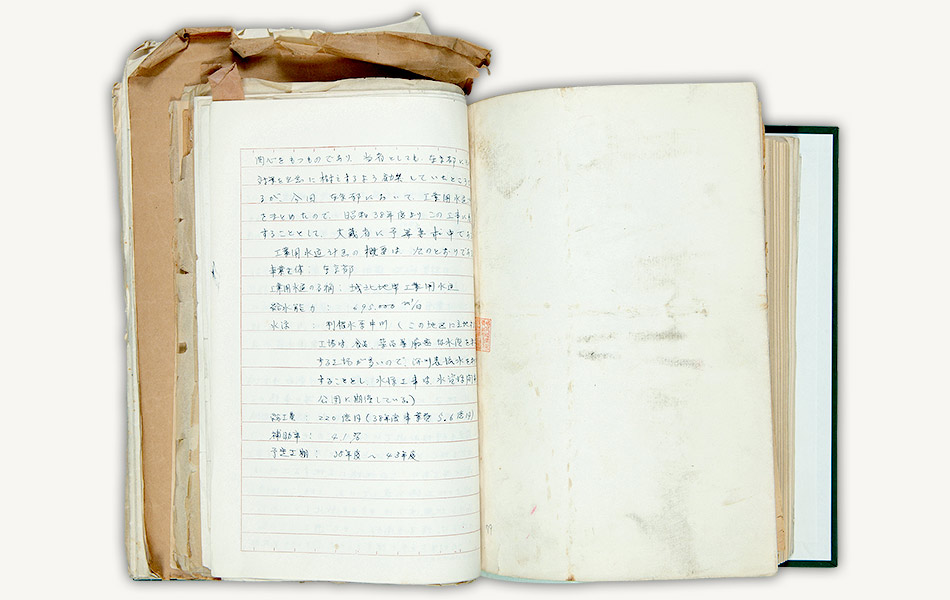 関心をもつものであり、当省としても、東京都に
対策を早急に樹立するよう していたところ
るが、今回、東京都において、工業用水道
をまとめたので、昭和38年度よりこの工事に
することとして、大蔵省に予算要求中であ
工業用水道計画の概要は次のとおりであ
事業主体：東京都
工業用水道の名称：城北地区工業用水道
給水能力： 695.000 m³/日
水源：利根水系中川（この地区に立地
工場は、食品、薬品等 水を
する工場が多いので、 水を
することとし、水源工事は、水資源開発
公団に期待している。）
総工費：220億円（38年度事業費5.6億円）
補助率：21%
予定工期：38年度～43年度